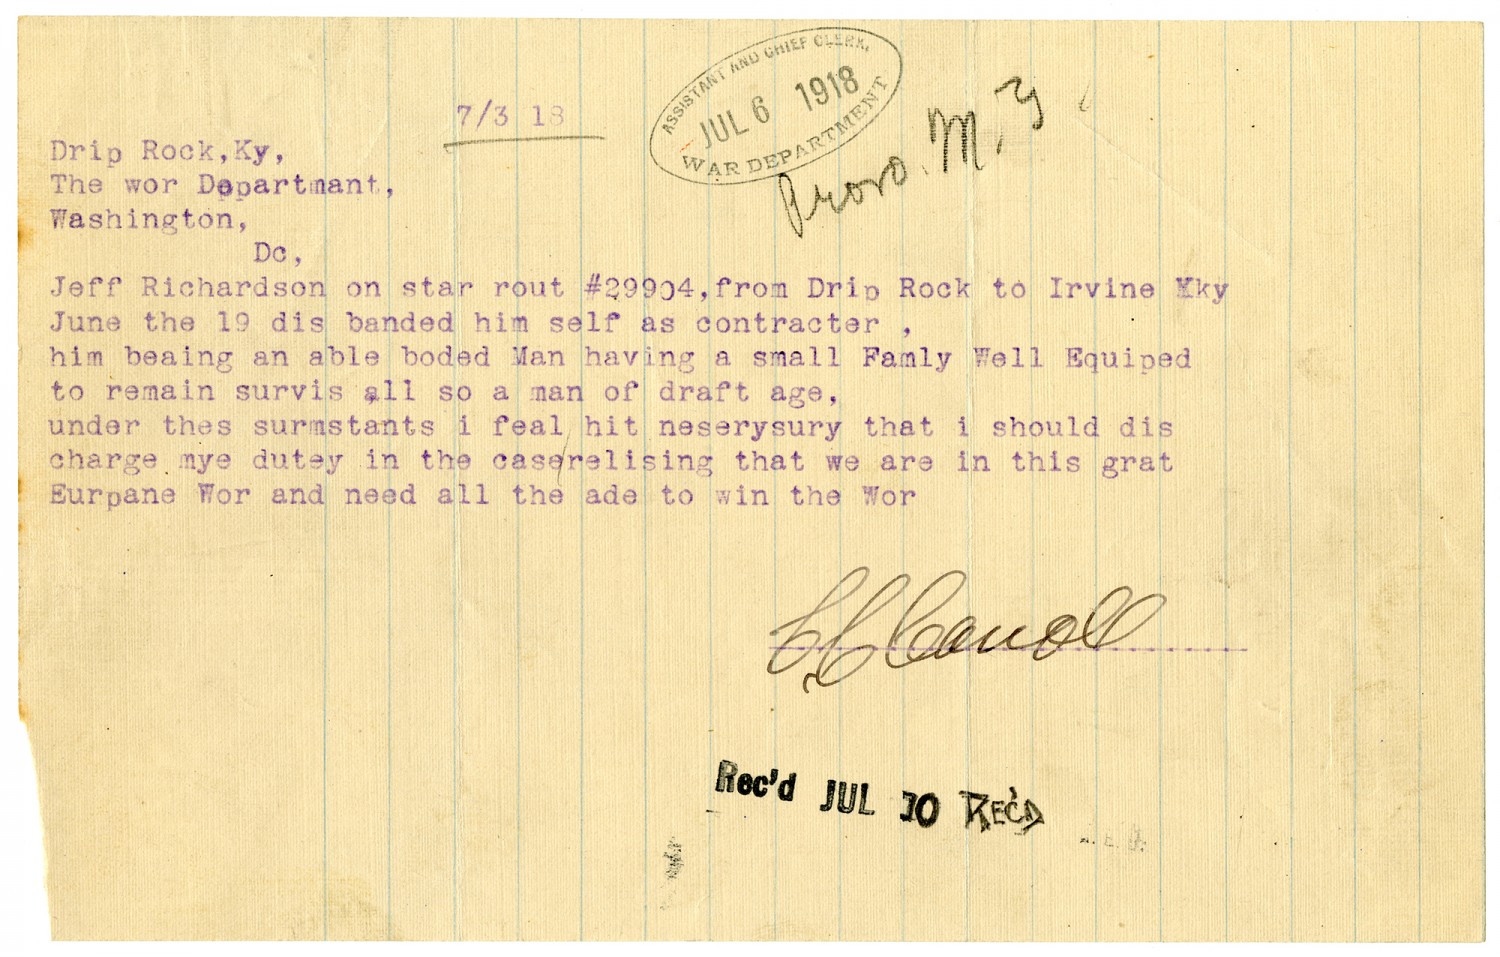 ASSISTANT AND CHIEF CLERK,
JUL 6 1918
WAR DEPARTMENT
Provo. M.
7/3 18
Drip Rock,Ky,
The wor Department,
Washington,
Dc,
Jeff Richardson on star rout #29904,from Drip Rock to Irvine Kky
June the 19 dis banded him self as contracter ,
him beaing an able boded Man having a small Famly Well Equiped
to remain survis all so a man of draft age,
under thes surmstants i feal hit neserysury that i should dis
charge mye dutey in the case/relising that we are in this grat
Eurpane Wor and need all the ade to win the Wor
Carroll
Rec'd JUL 10 REC'D